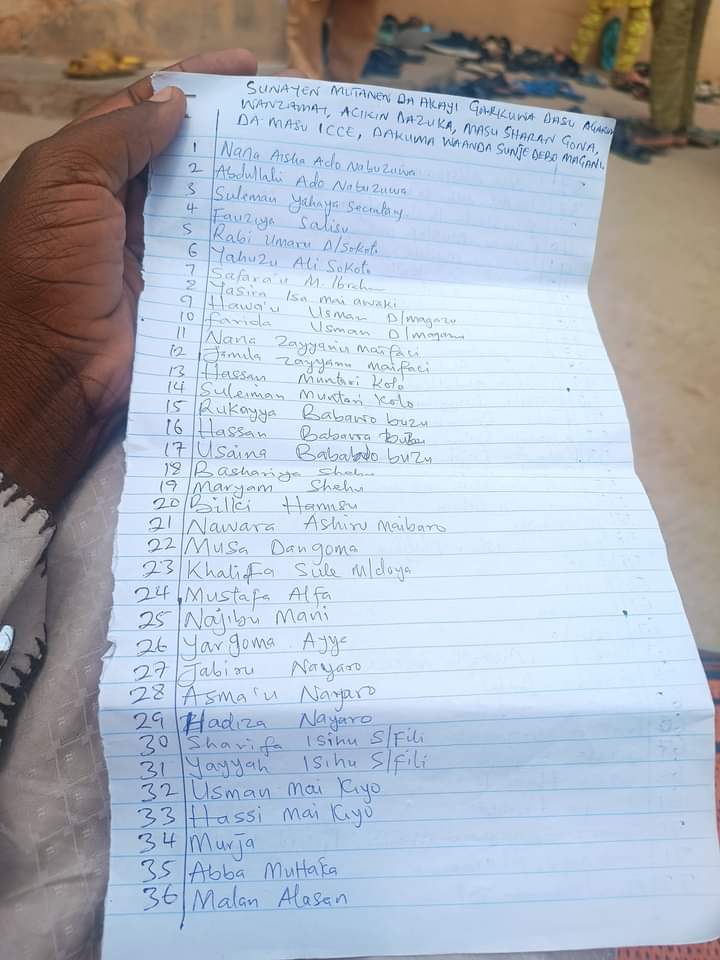 SUNAYEN MUTANEN DA AKAYI GARKUWA DASU AGARIN
WANZAMAI, ACIKIN DAZUKA, MASU SHARAN GONA,
DA MASU ICCE, DAKUMA WAANDA SUNJE DEBO MAGANI,
1 Nana Aisha Ado Nabuzuwa
2 Abdullahi Ado Nabuzuwa
3 Suleman Yahaya Secretary
4 Fauziya Salisu
5 Rabi Umaru D/Sokoto
6 Yahuzu Ali Sokoto
7 Safara'u M. Ibrahim
8 Yasira Isa mai awaki
9 Hawa'u Usman D/magaru
10 Farida Usman D/magaru
11 Nana Zayyanu maifaci
12 Jamila Zayyanu maifaci
13 Hassan Muntari Kolo
14 Suleiman Muntari Kolo
15 Rukayya Babawo buzu
16 Hassan Babawo buzu
17 Usaina Babawo buzu
18 Bashariya Shehu
19 Maryam Shehu
20 Bilki Hamisu
21 Nawara Ashiru maibaro
22 Musa Dangoma
23 Khalifa Sule M/doya
24 Mustafa Alfa
25 Najibu Mani
26 Yargoma Ayye
27 Jabiru Nayaro
28 Asma'u Nayaro
29 Hadiza Nayaro
30 Sharifa Isihu S/Fili
31 Yayyah Isihu S/fili
32 Usman Mai Kiyo
33 Hassi Mai Kiyo
34 Murja
35 Abba Muttaka
36 Malan Alasan